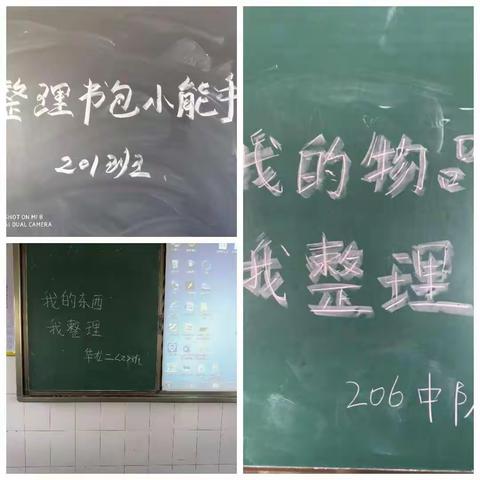 整理书包小能手
201班
SHOT ON MI 8
AI DUAL CAMERA
我的物品
我整理
206中队
我的东西
我整理